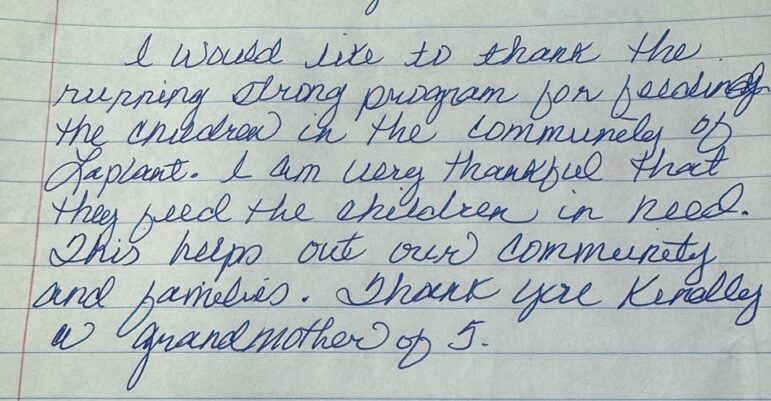 I would like to thank the
running strong program for feeding
the children in the community of
Laplant. I am very thankful that
they feed the children in need.
This helps out our community
and families. Thank you kindly
a grandmother of 5.